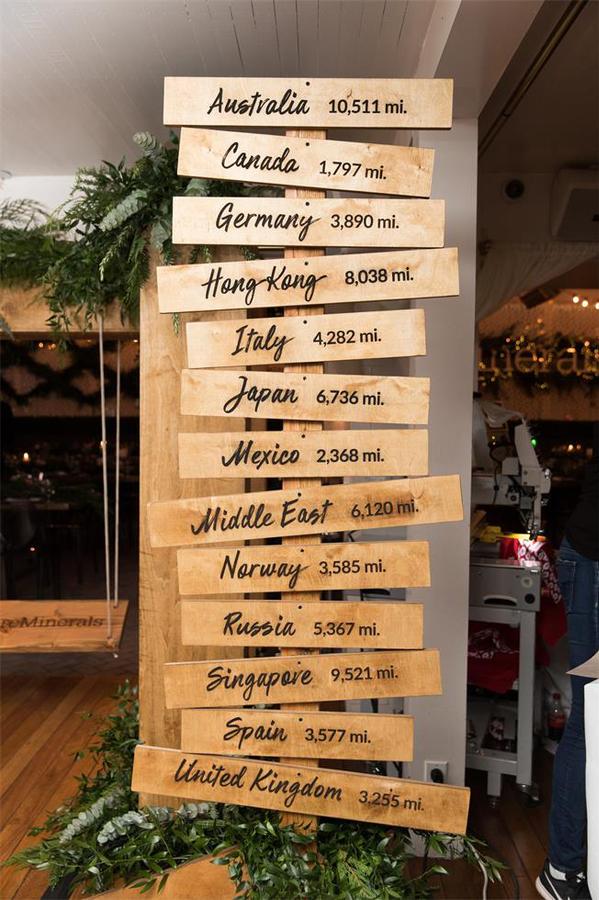 Australia 10,511 mi.
Canada 1,797 mi.
Germany 3,890 mi.
Hong Kong 8,038 mi.
Italy 4,282 mi.
Japan 6,736 mi.
Mexico 2,368 mi.
Middle East 6,120 mi.
Norway 3,585 mi.
Russia 5,367 mi.
Singapore 9,521 mi.
Spain 3,577 mi.
United Kingdom 3,255 mi.
reMinerals